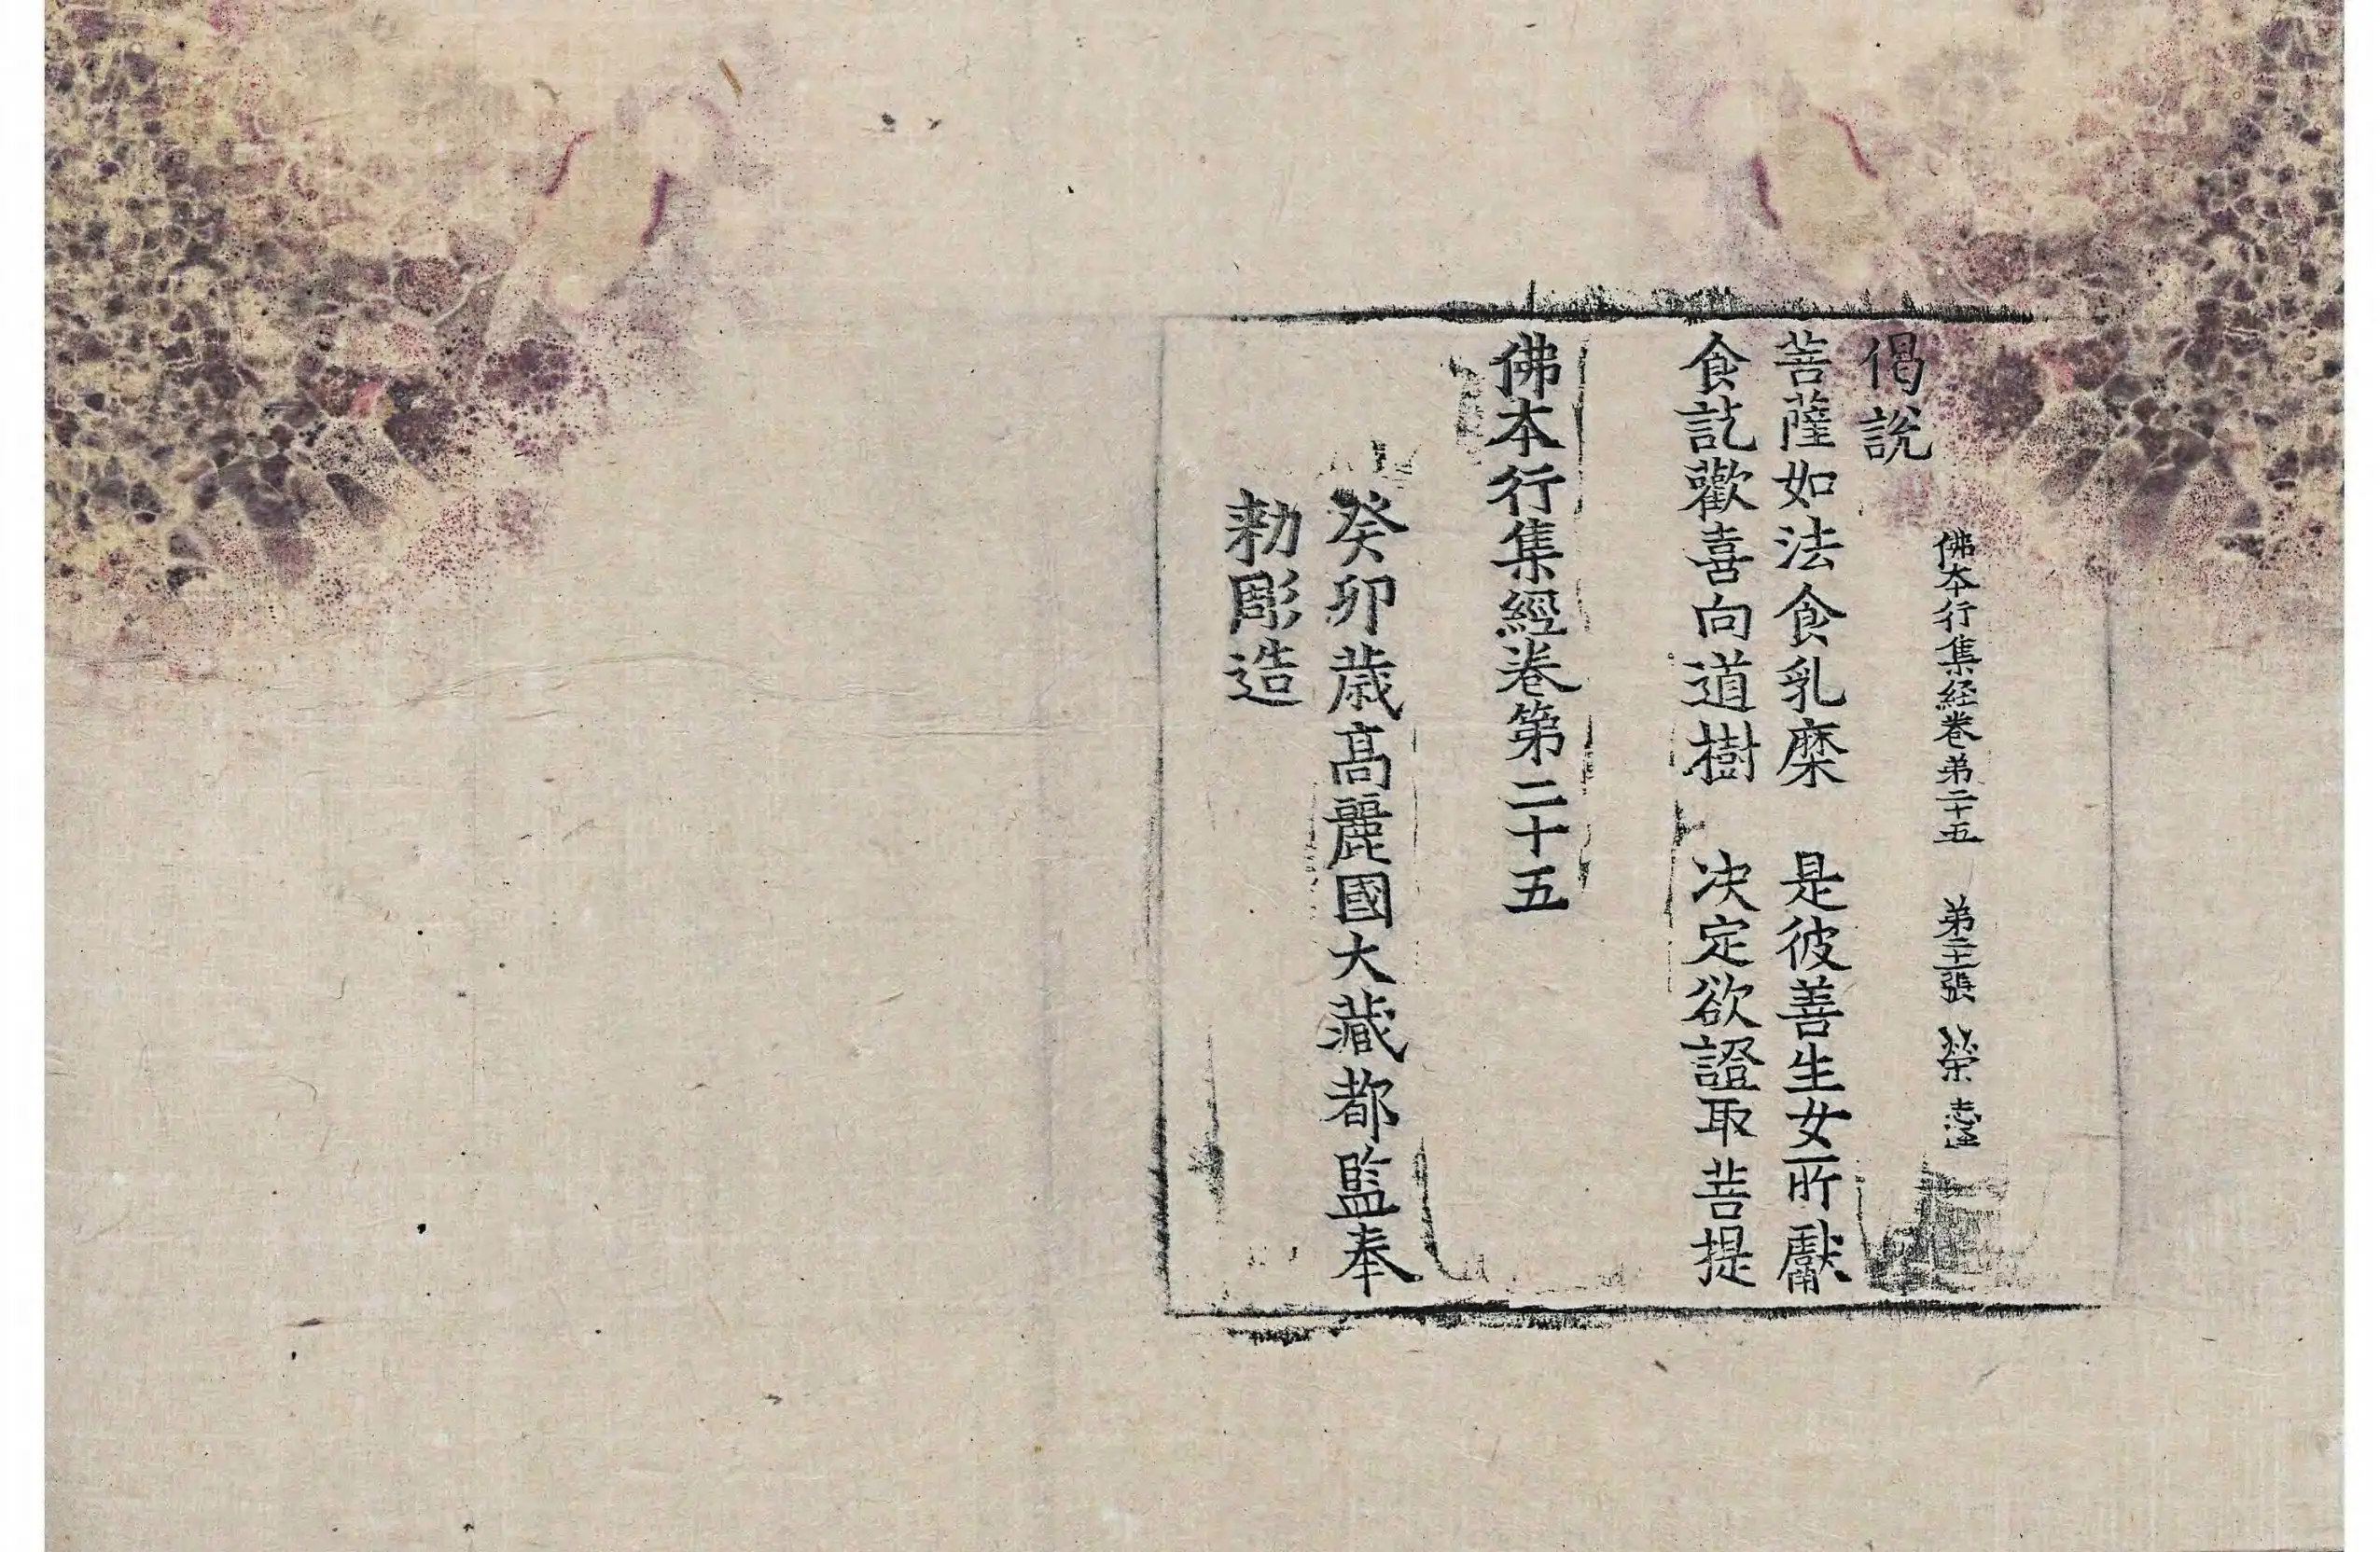 偈說
佛本行集経卷弟二十五 弟二十張 榮 志
菩薩如法食乳糜 是彼善生女所獻
食訖歡喜向道樹 决定欲證取菩提
佛本行集經卷第二十五
癸卯歲高麗國大藏都監奉
勅彫造